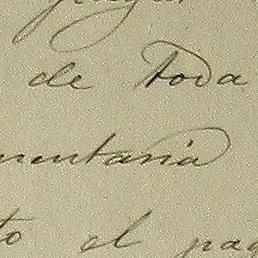 de toda
mentaria
to el pag